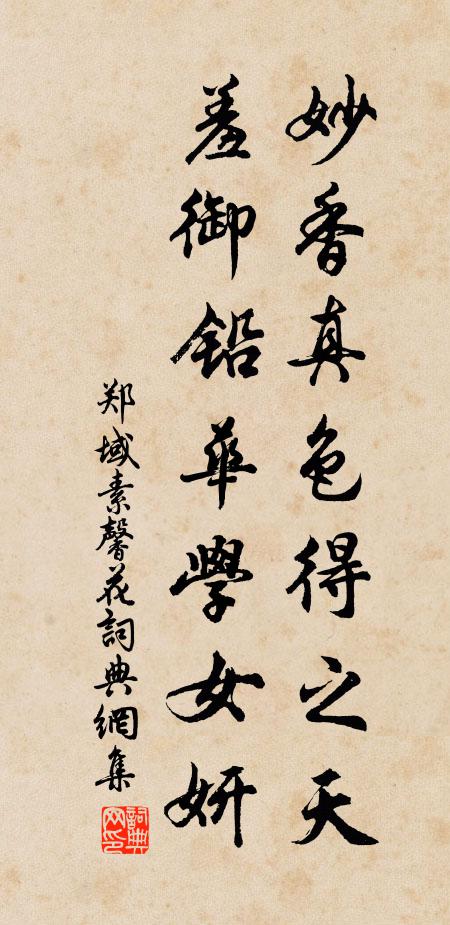 妙香真色得之天
羞御铅华學女妍
郑域素馨花詞典網集
詞典网印